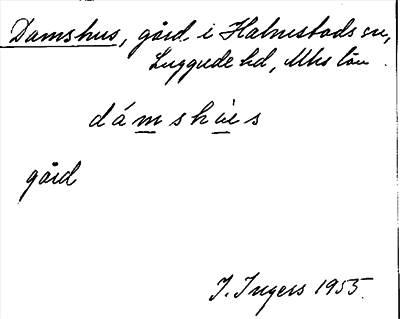 Damshus, gård i Halmstads sn,
Luggude hd, Mhs län.
dámshùs
gård
I. Ingers 1955.